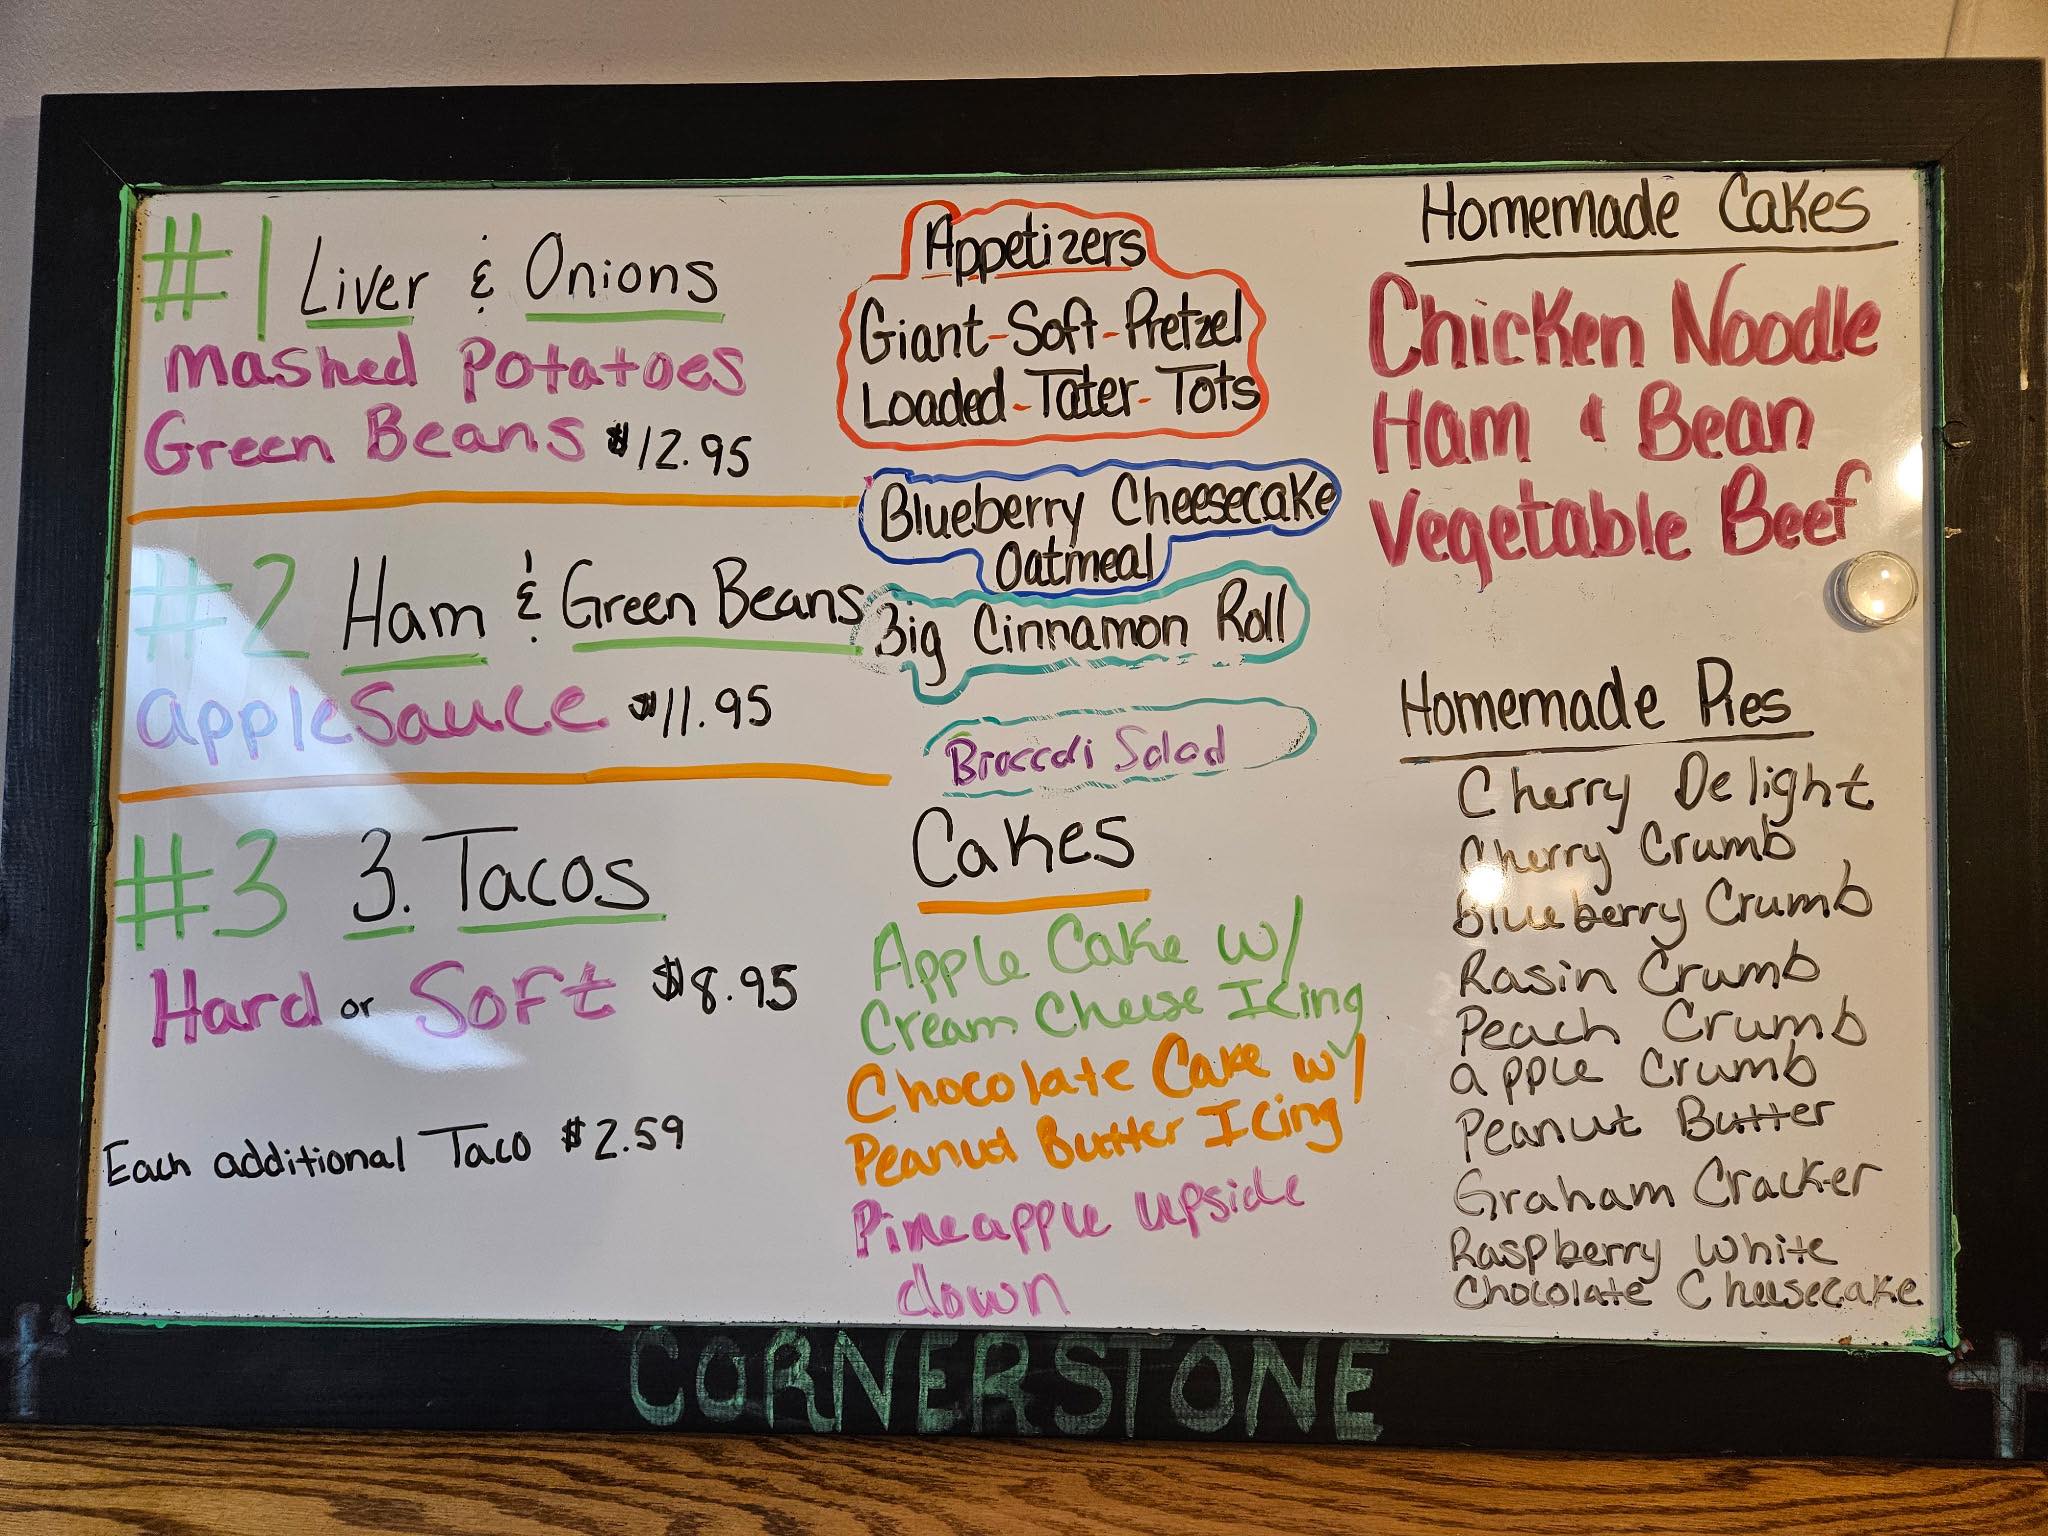 #1 Liver & Onions
Mashed Potatoes
Green Beans $12.95
#2 Ham & Green Beans
applesauce $11.95
#3 3. Tacos
Hard or Soft $8.95
Each additional Taco $2.59
Appetizers
Giant-Soft-Pretzel
Loaded-Tater-Tots
Blueberry Cheesecake
Oatmeal
Big Cinnamon Roll
Broccoli Salad
Cakes
Apple Cake w/
Cream Cheese Icing
Chocolate Cake w/
Peanut Butter Icing
Pineapple upside
down
Homemade Cakes
Chicken Noodle
Ham & Bean
Vegetable Beef
Homemade Pies
Cherry Delight
Cherry Crumb
Blueberry Crumb
Rasin Crumb
Peach Crumb
apple Crumb
Peanut Butter
Graham Cracker
Raspberry White
Chocolate Cheesecake
CORNERSTONE